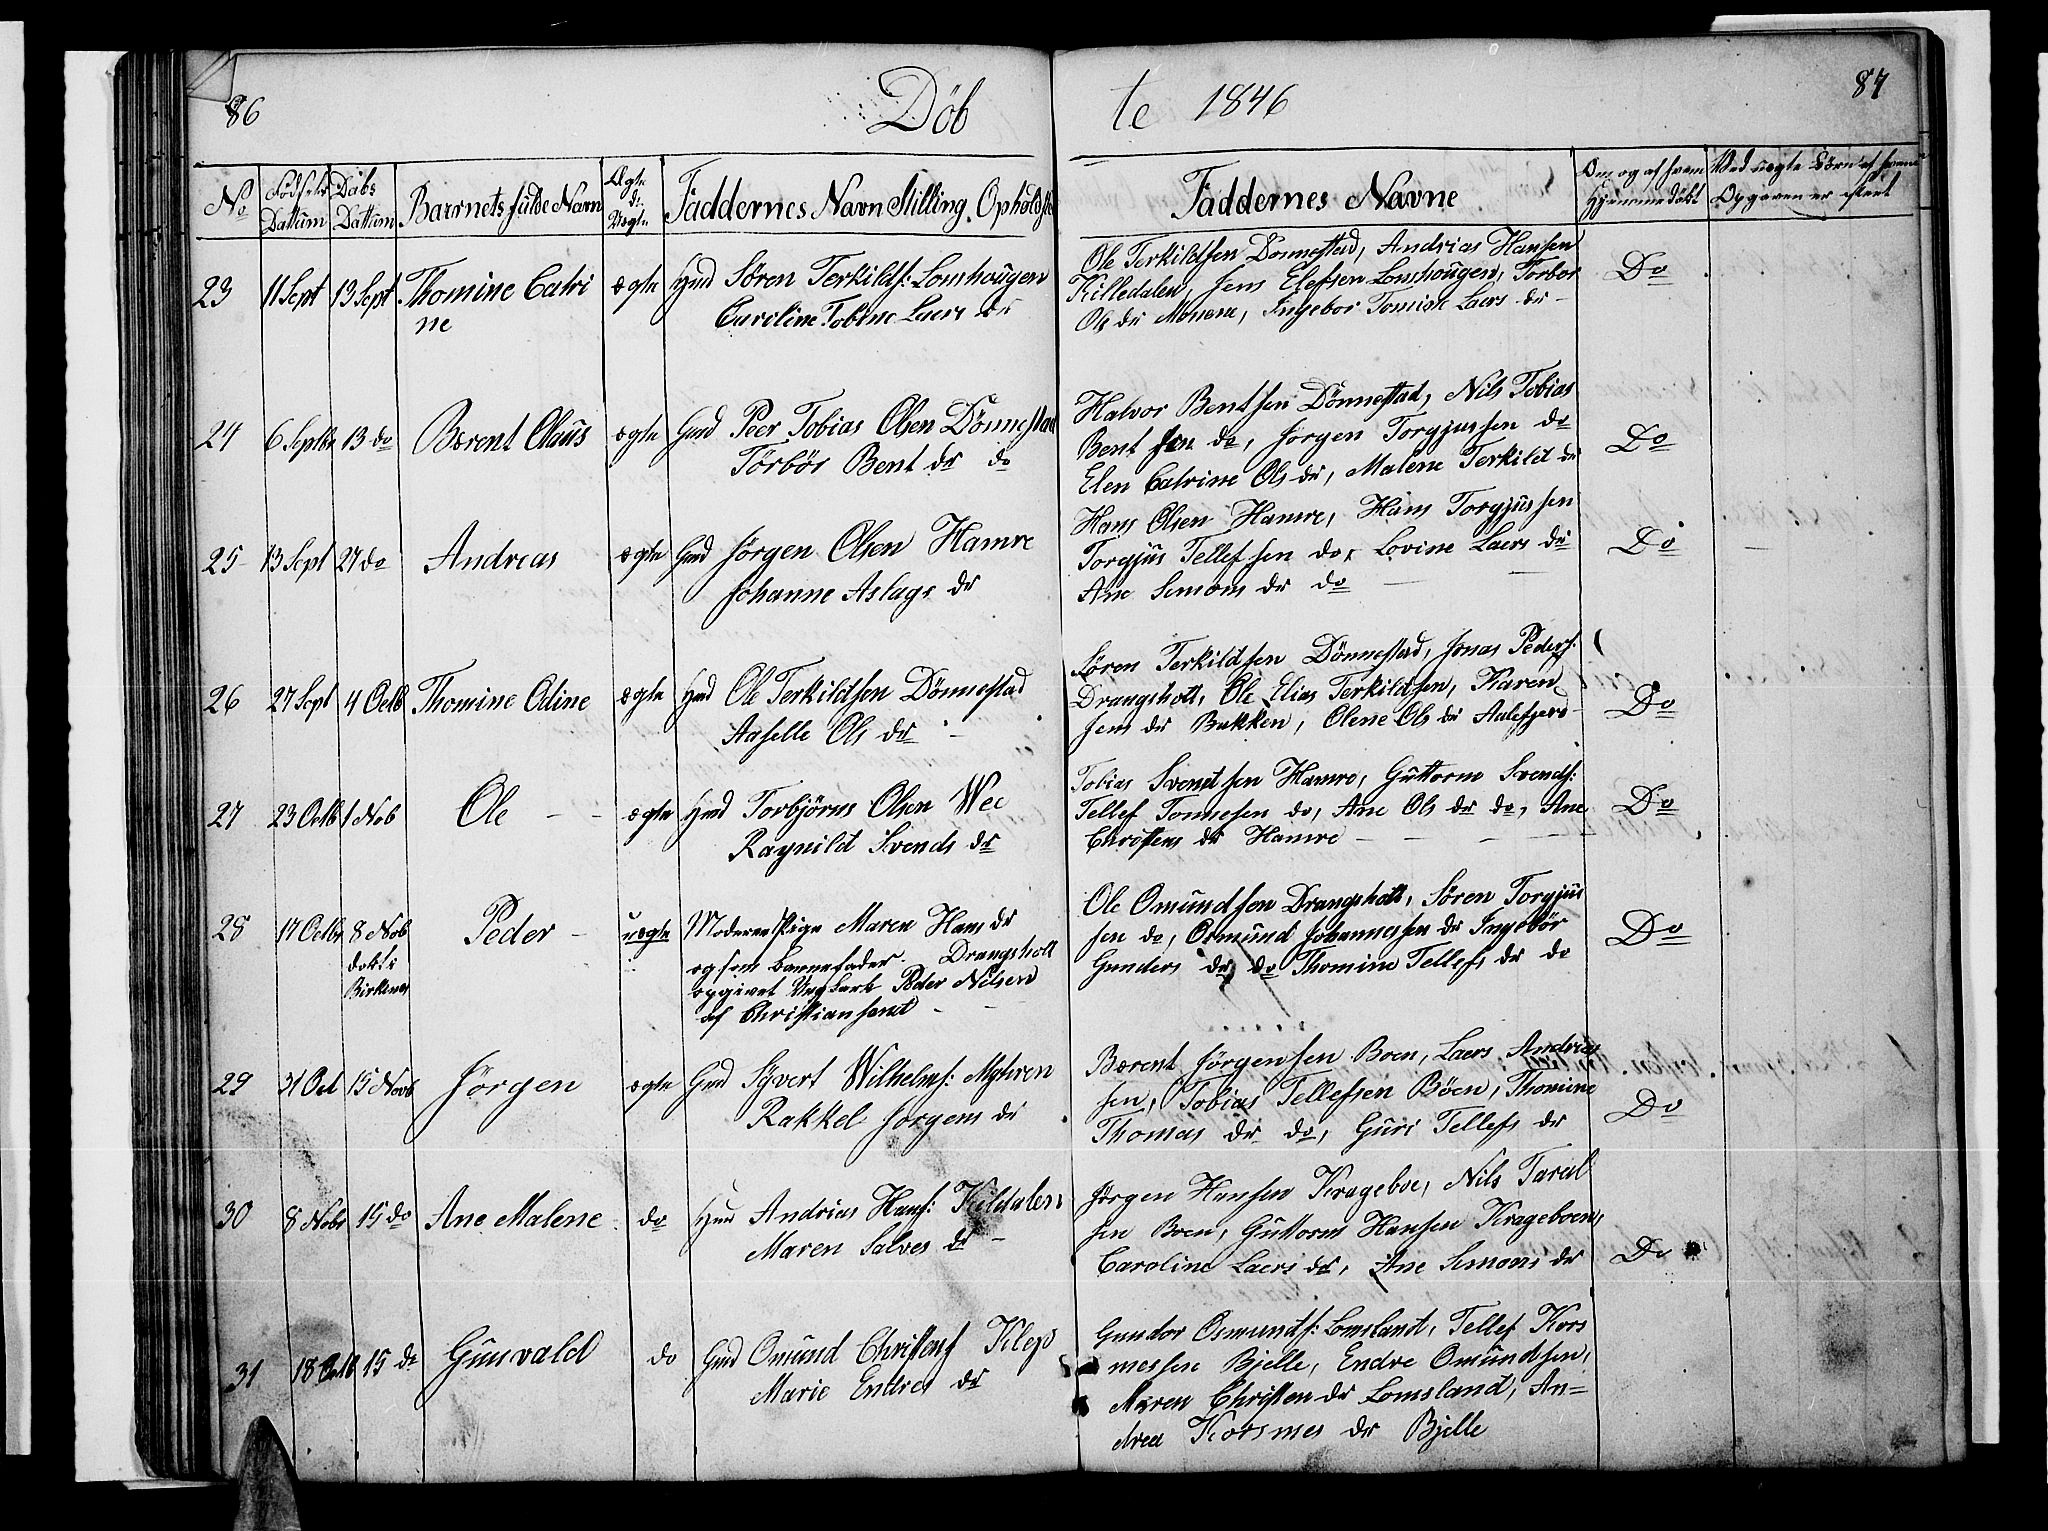 86
Döb
te 1846
87
No
Födsels Dattum
Döbs Dattum
Barrnets fulde Navn
Ægte el: Uægte
Faddernes Navn Stilling. Opholdst
Faddernes Navne
Om og af hvem Hjemmedöbt
Ved uegte Börn af hvem Opgaven er skeet
23 11 Sept 13 Sept Thomine Catri
ne
ægte Hmd Sören Terkilds: Lomhougen
Caroline Tobine Laers dr
Ole Terkildsen Dönnestad, Andrias Hansen
Killedalen, Jens Elefsen Lomshougen, Torbor
Ols dr Monene, Ingebor Tomine Laers dr –
Do
24 6 Septbr 13 do Bærent Olaus
ægte Gmd Peer Tobias Olsen Dönnestad
Törbör Bent dr do
Halvor Bentsen Dönnestad, Nils Tobias
Bent sen do, Jorgen Torgjussen do
Elen Catrine Ols dr, Malene Terkild dr
Do
25 13 Sept 27 do Andreas
ægte Gmd Jörgen Olsen Hamre
Johanne Aslags dr
Hans Olsen Hamre, Hans Torgjussen
Torgjus Tellefsen do, Lovine Laers dr
Ane Semons dr do
Do
26 27 Sept 4 Octb Thomine Odine
ægte Hmd Ole Terkildsen Dönnestad
Aaselle Ols dr
Sören Terkildsen Dönnestad, Jonas Peders:
Drangsholt, Ole Elias Terkildsen, Karen
Jens dr Bakken, Olene Ols dr Aalefjero
Do
27 23 Octb 1 Nob Ole
ægte Hmd Torbjörns Olsen Wee
Raynild Svends dr
Tobias Svendsen Hamre, Guttorm Svends:
Tellef Tonnesen do, Ane Ols dr do, Ane
Christens dr Hamre
Do
28 17 Octbr 8 Nob
dobt i
Birkenes
Peder
uægte Moderen Pige Maren Hans dr
og som Barnefader Drangsholt
opgivet Ungkarl Peder Nilsen
af Christiansand
Ole Omundsen Drangsholt, Sören Torgjus
sen do, Osmund Johannessen do Ingebör
Gunders dr do Thomine Tellefs dr do
Do
29 31 Oct 15 Novb Jörgen
ægte Gmd Syvert Wilhelms: Myhren
Rakkel Jorgens dr
Bærent Jörgensen Boen, Laers Andrias
sen, Tobias Tellefsen Böen, Thomine
Thomas dr do, Guri Tellefs dr
Do
30 8 Nobr 15 do Ane Malene
do Hmd Andrias Hans: Kildalen
Maren Salves dr
Jörgen Hansen Krageboe, Nils Taral
sen Boen, Guttorm Hansen Krageboen,
Caroline Laers dr, Ane Semons dr
Do
31 18 Octb 15 do Gunvald
do Gmd Omund Christens Klep
Marie Endres dr
Gundor Osmunds: Lomsland, Tellef Kors
messen Bjelle, Endre Omundsen,
Maren Christen dr Lomsland, An=
drea Korsmes dr Bjelle